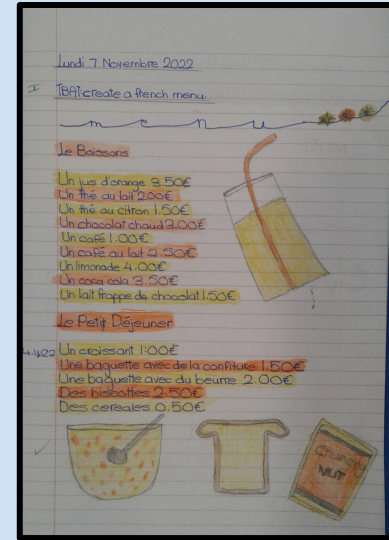 Lundi 7 Novembre 2022
I
TBAT-create a french menu.
menu
Le Boissons
Un jus d'orange 3.50€
Un thé au lait 2.00€
Un thé au citron 1.50€
Un chocolat chaud 3.00€
Un café 1.00€
Un café au lait 2.50€
Un limonade 4.00€
Un coca cola 3.50€
Un lait frappe de chocolat 1.50€
Le Petit Déjeuner
Un croissant 1.00€
Une baguette avec de la confiture 1.50€
Une baguette avec du beurre 2.00€
Des bisbottes 2.50€
Des cereales 0.50€
Crunchy
NUT